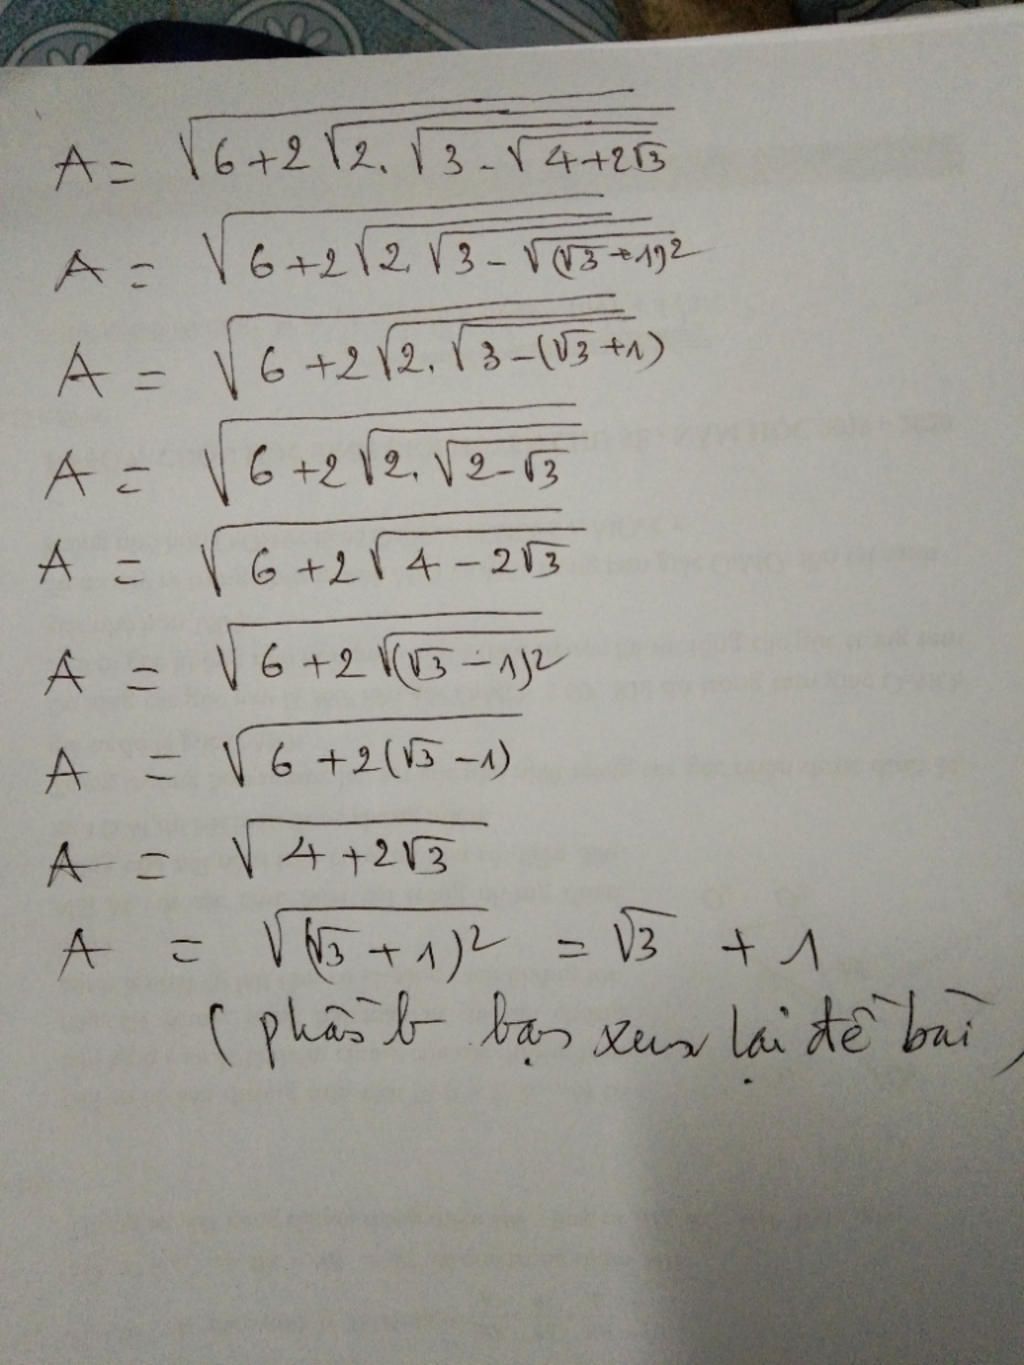 A = √(6+2√(2.√(3-√(4+2√3))))
A = √(6+2√(2.√(3-√((√3+1)²))))
A = √(6+2√(2.√(3-(√3+1))))
A = √(6+2√(2.√(2-√3)))
A = √(6+2√(4-2√3))
A = √(6+2√((√3-1)²))
A = √(6+2(√3-1))
A = √(4+2√3)
A = √((√3+1)²) = √3 + 1
(phần b bạn xem lại đề bài)